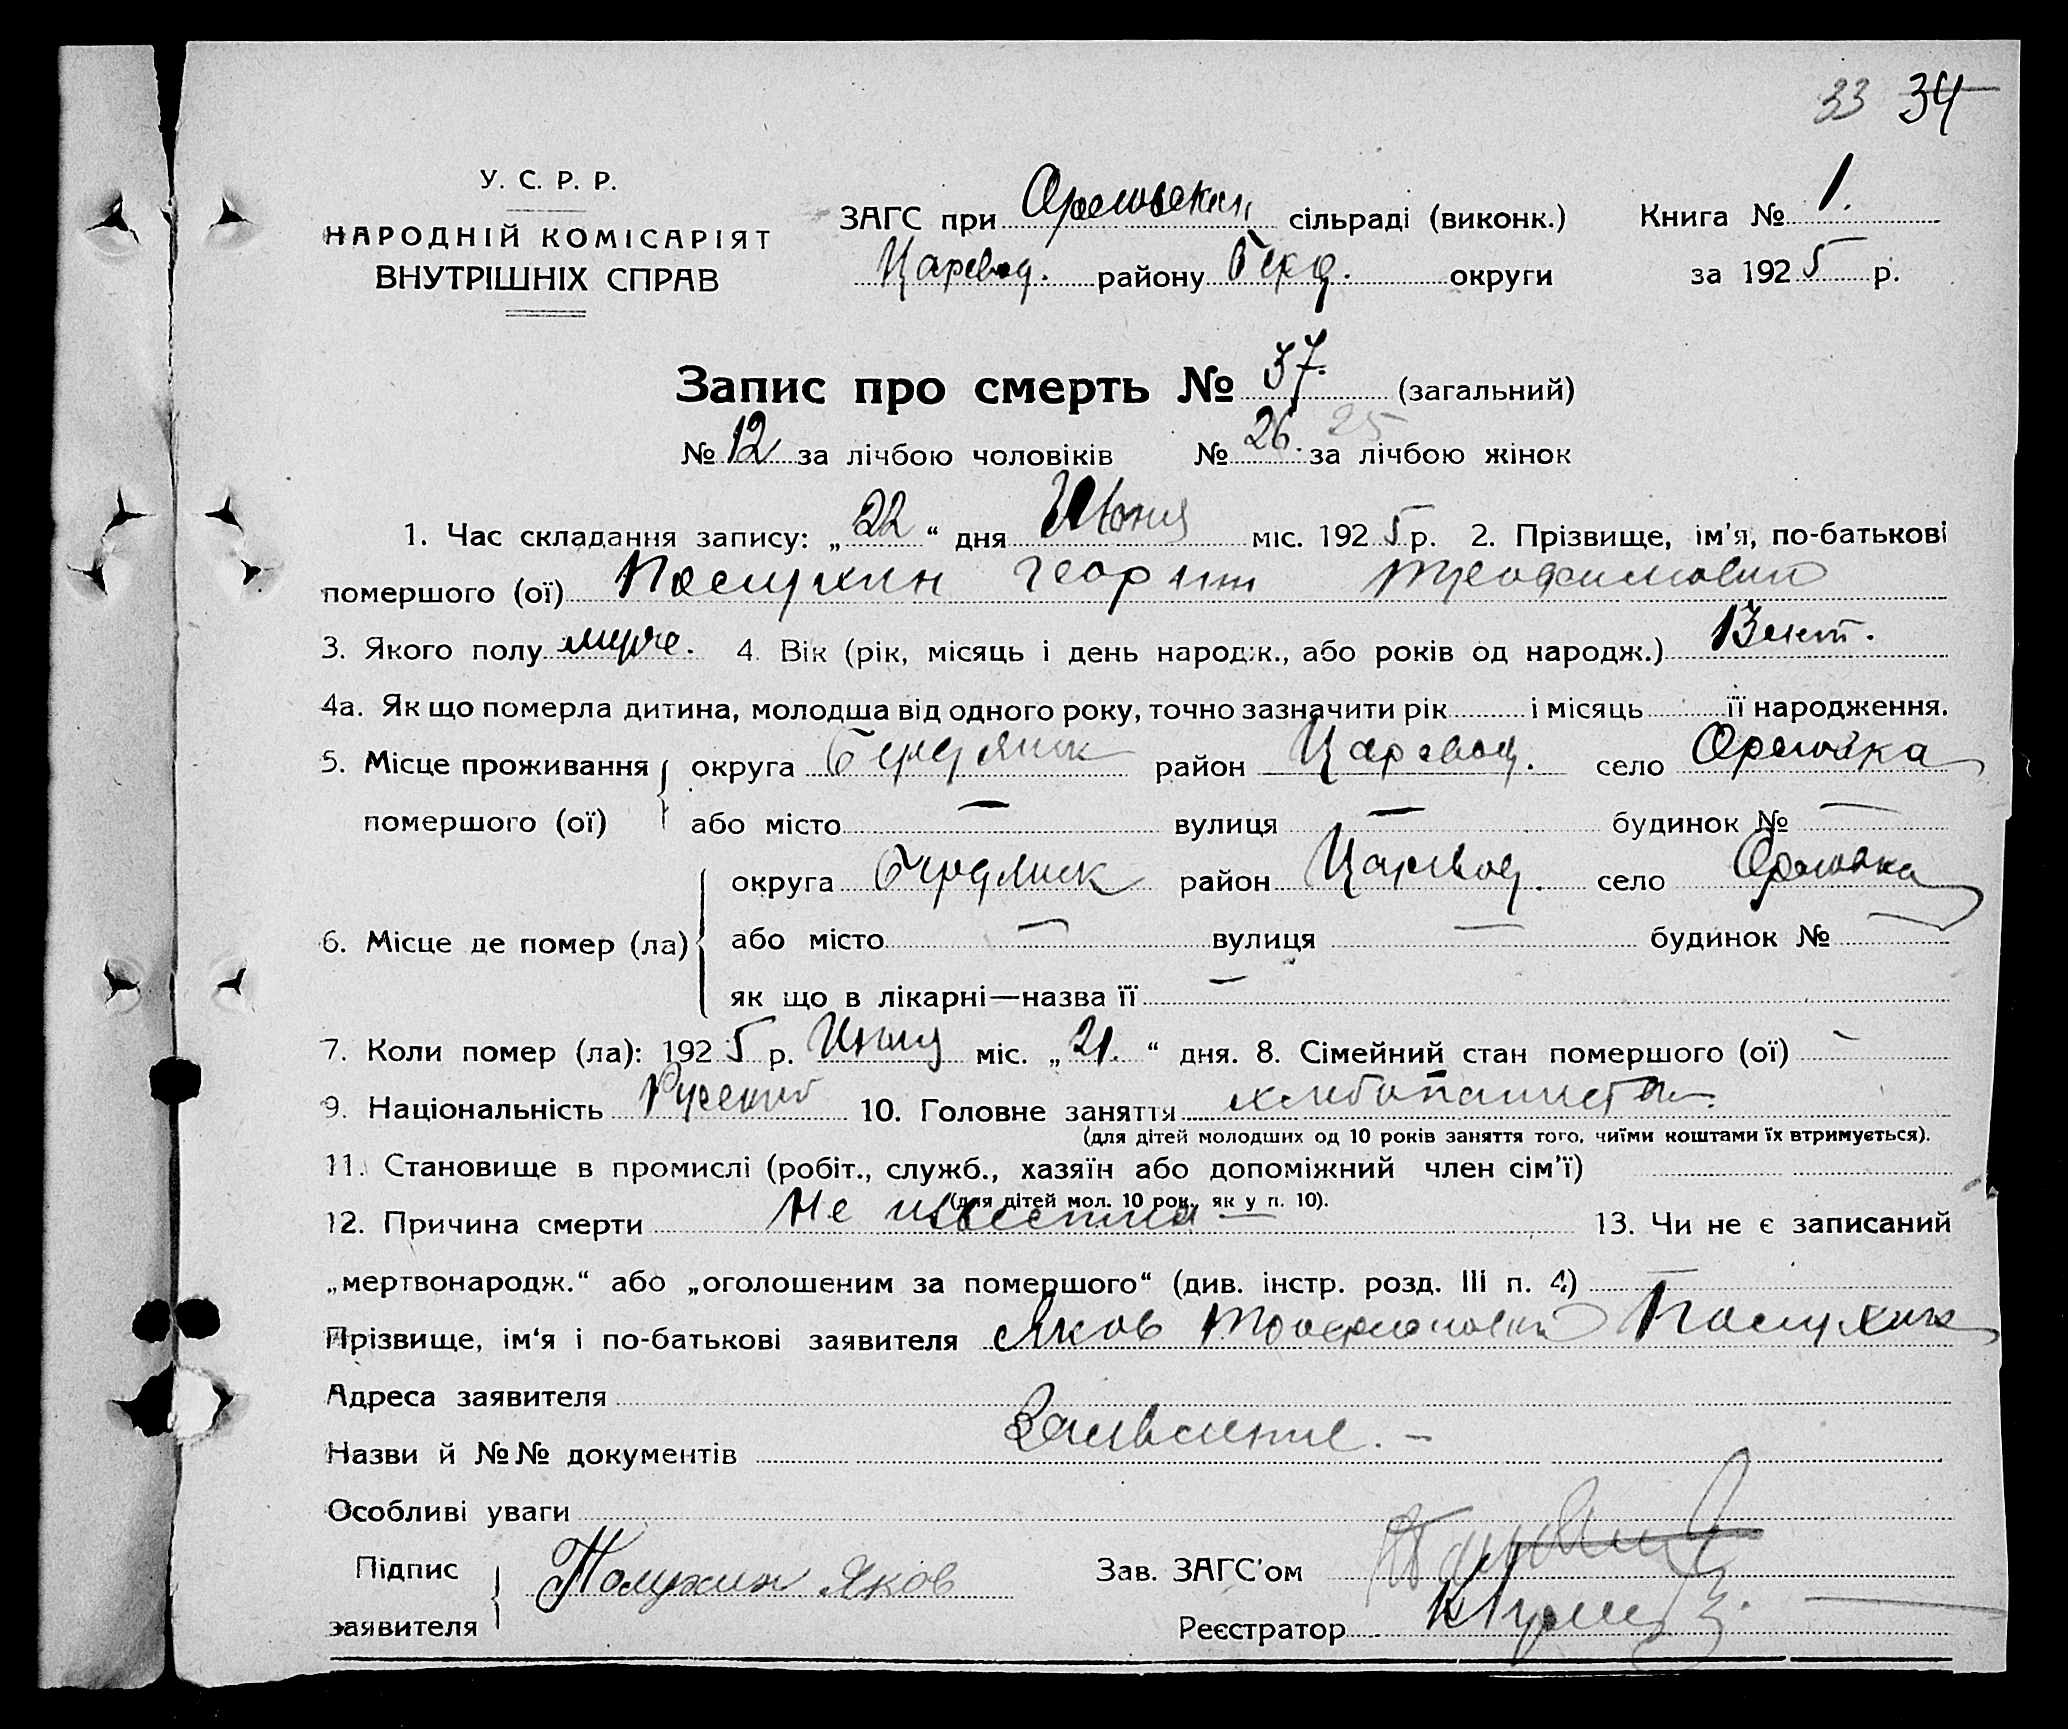 33 34
У. С. Р. Р.
НАРОДНІЙ КОМІСАРІЯТ
ВНУТРІШНІХ СПРАВ
ЗАГС при Орловским сільраді (виконк.) Книга № 1.
Царевод. району Берд. округи за 1925 р.
Запис про смерть № 37. (загальний)
№ 12 за лічбою чоловіків № 26. 25 за лічбою жінок
1. Час складання запису: „22“ дня Июня міс. 1925 р. 2. Прізвище, ім'я, по-батькові
помершого (ої) Георгий Трофимович
3. Якого полу муже. 4. Вік (рік, місяць і день народж., або років од народж.) 13 лет.
4а. Як що померла дитина, молодша від одного року, точно зазначити рік і місяць її народження.
5. Місце проживання округа Бердянск район Царевод. село Орловка
помершого (ої) або місто — вулиця — будинок № —
округа Бердянск район Царевод. село Орловка
6. Місце де помер (ла) або місто — вулиця — будинок № —
як що в лікарні—назва її —
7. Коли помер (ла): 1925 р. Июня міс. „21.“ дня. 8. Сімейний стан помершого (ої) —
9. Національність Русский 10. Головне заняття
(для дітей молодших од 10 років заняття того, чиїми коштами їх втримується).
11. Становище в промислі (робіт., служб., хазяїн або допоміжний член сім'ї)
(для дітей мол. 10 рок., як у п. 10).
12. Причина смерти Не известна — 13. Чи не є записаний
„мертвонародж.“ або „оголошеним за помершого“ (див. інстр. розд. III п. 4) —
Прізвище, ім'я і по-батькові заявителя Яков Трофимович
Адреса заявителя
Назви й №№ документів Заявление. –
Особливі уваги
Підпис Яков Зав. ЗАГС'ом
заявителя Реєстратор